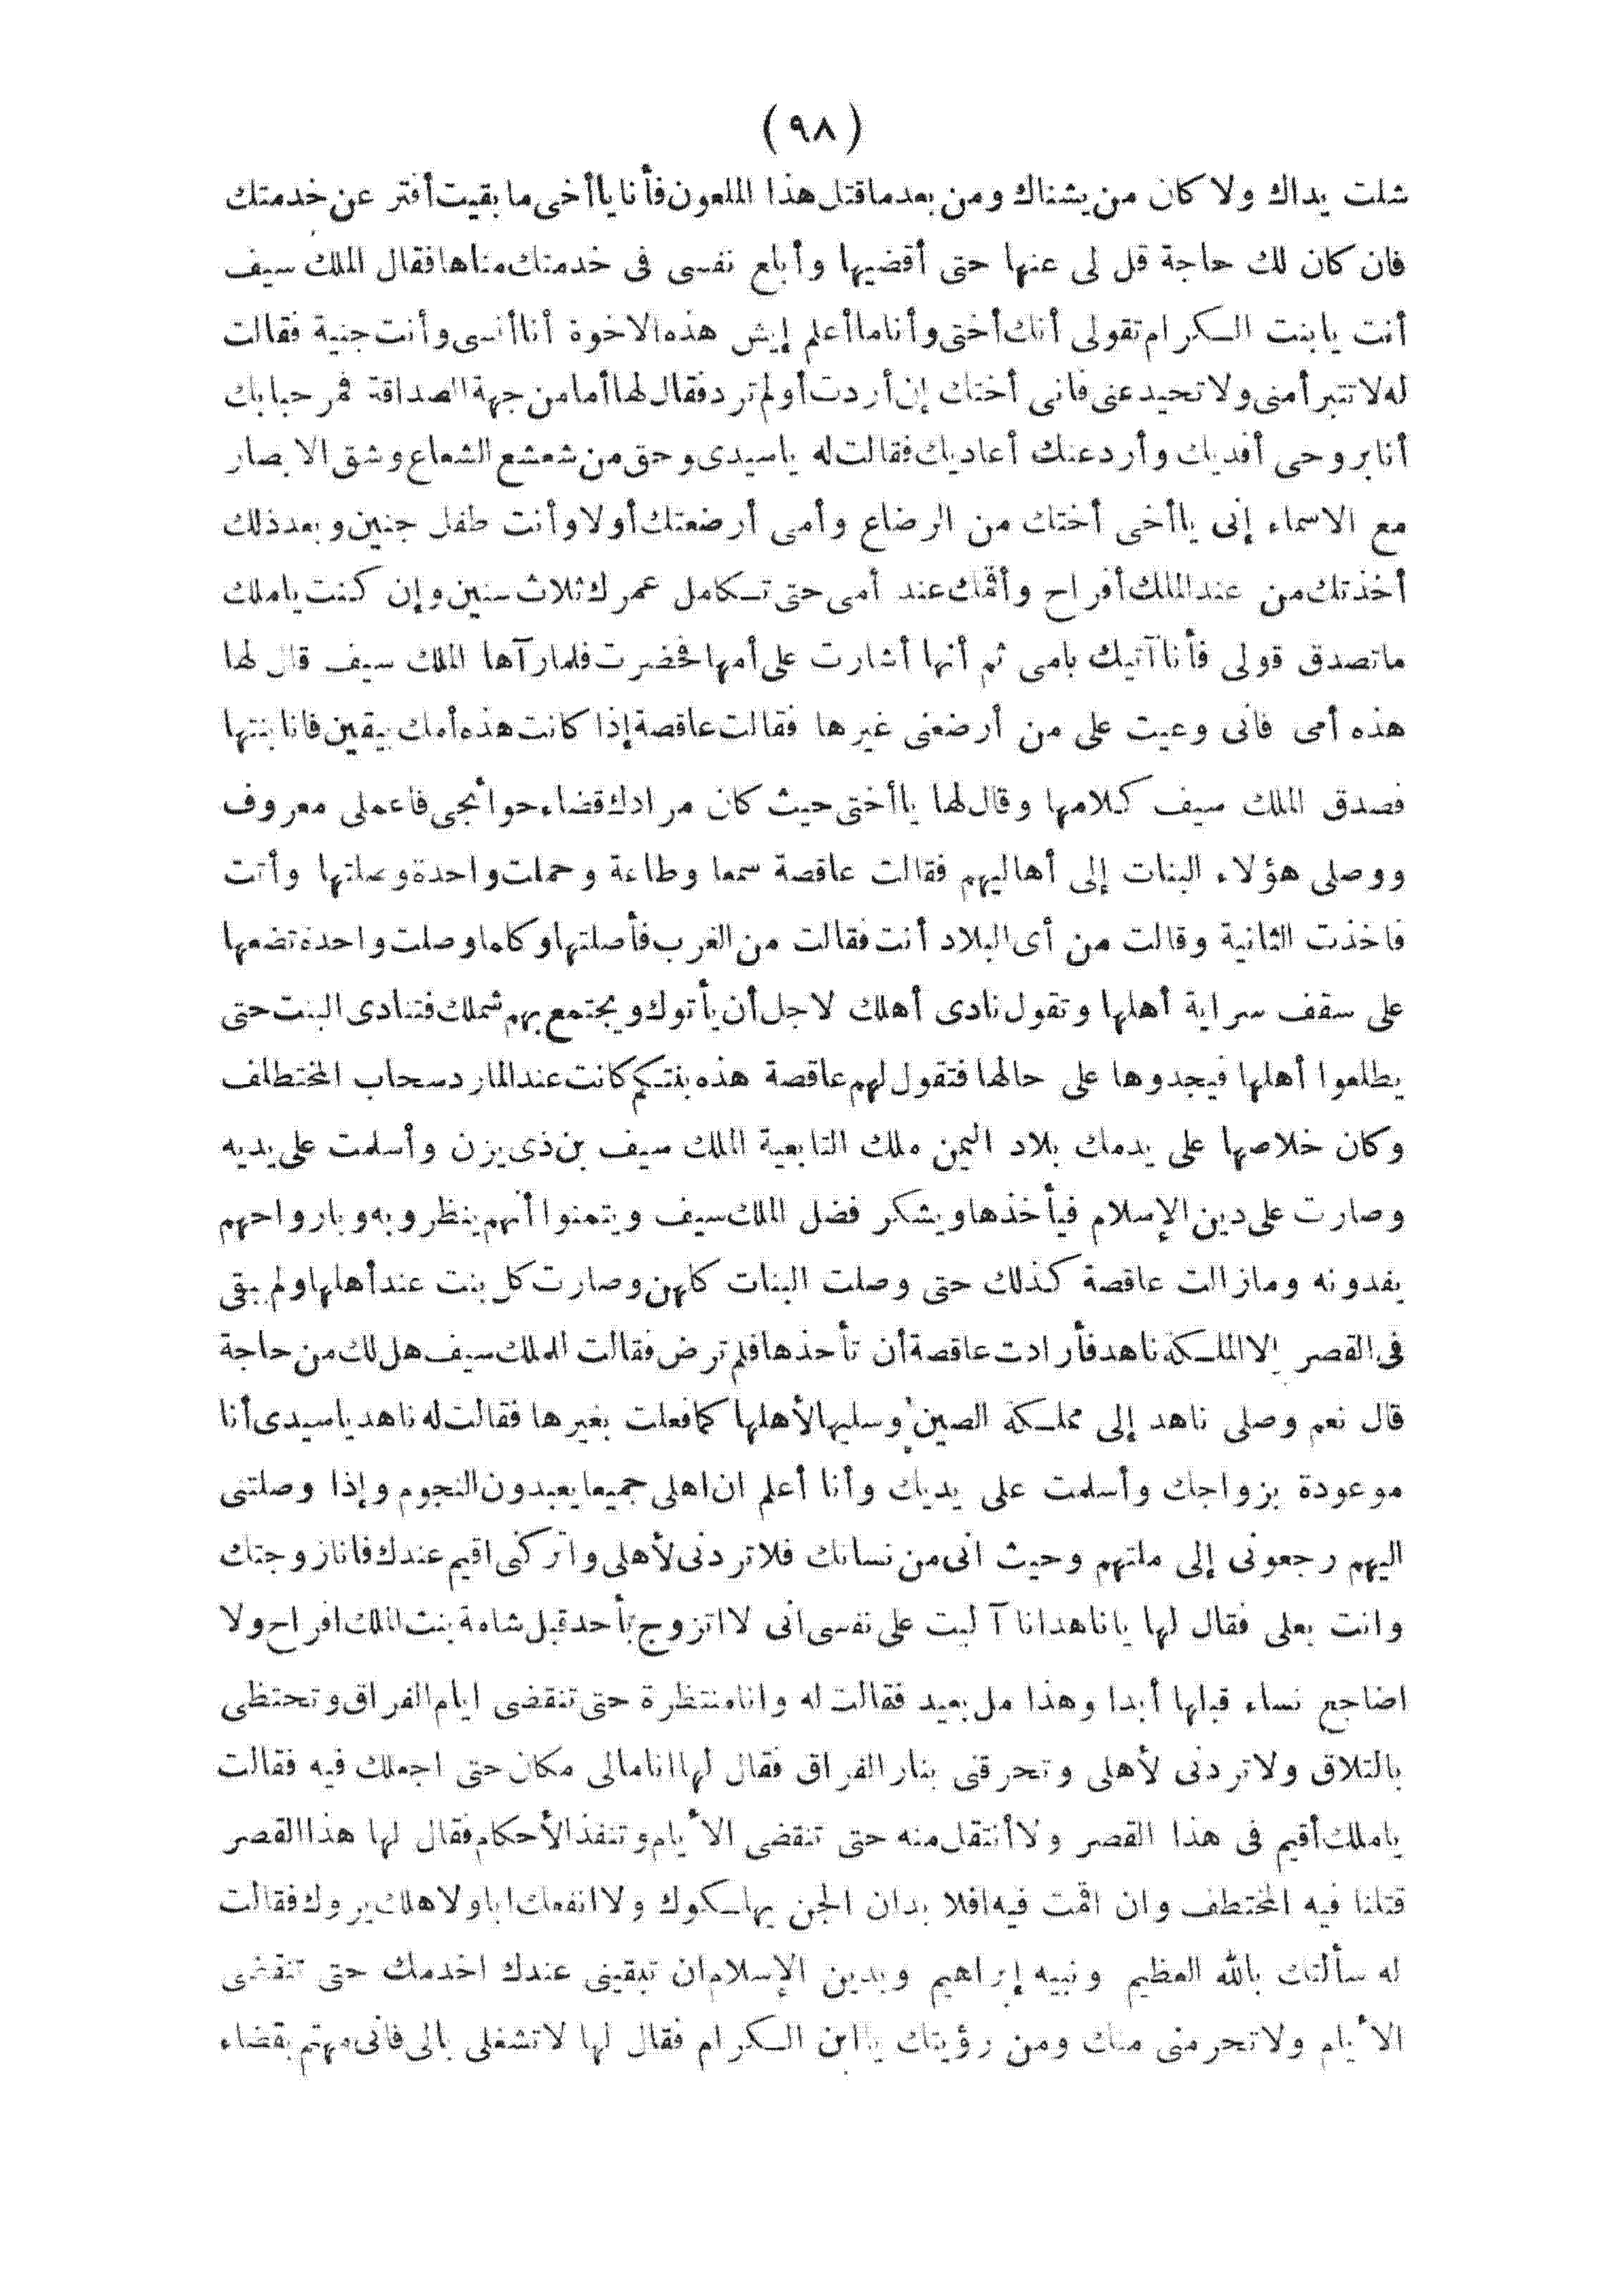 (٩٨)
شلت يداك ولا كان من يشناك ومن بعد ما قتل هذا الملعون فأنا يا أخى ما بقيت أفتر عن خدمتك
فان كان لك حاجة قل لى عنها حتى أقضيها وأبلغ نفسى فى خدمتك مناها فقال الملك سيف
أنت يا بنت الكرام تقولى أنك أختى وأنا ما أعلم إيش هذه الاخوة أنا أنسى وأنت جنية فقالت
له لا تتبرأ منى ولا تحيد عنى فانى أختك إن أردت أو لم ترد فقال لها أما من جهة الصداقة فمرحبا بك
أنا بروحى أفديك وأرد عنك أعاديك فقالت له يا سيدى وحق من شعشع الشعاع وشق الابصار
مع الاسماء إنى يا أخى أختك من الرضاع وأمى أرضعتك أولا وأنت طفل جنين وبعد ذلك
أخذتك من عند الملك أفراح وأقمك عند أمى حتى تكامل عمرك ثلاث سنين وإن كنت يا ملك
ما تصدق قولى فأنا آتيك بامى ثم أنها أشارت على أمها فحضرت فلما رآها الملك سيف قال لها
هذه أمى فانى وعيت على من أرضعنى غيرها فقالت عاقصة إذا كانت هذه أمك بيقين فانا بنتها
فصدق الملك سيف كلامها وقال لها يا أختى حيث كان مرادك قضاء حوائجى فاعملى معروف
ووصلى هؤلاء البنات إلى أهاليهم فقالت عاقصة سمعا وطاعة وحملت واحدة وصلتها وأتت
فاخذت الثانية وقالت من أى البلاد أنت فقالت من الغرب فأصلتها وكلما وصلت واحدة تضعها
على سقف سراية أهلها وتقول نادى أهلك لاجل أن يأتوك ويجتمع بهم شملك فتنادى البنت حتى
يطلعوا أهلها فيجدوها على حالها فتقول لهم عاقصة هذه بنتكم كانت عند المارد سحاب المختطف
وكان خلاصها على يد ملك بلاد اليمن ملك التابعية الملك سيف بن ذى يزن وأسلمت على يديه
وصارت على دين الإسلام فيأخذها ويشكر فضل الملك سيف ويتمنوا أنهم ينظروا به وبارواحهم
يفدونه ومازالت عاقصة كذلك حتى وصلت البنات كلهن وصارت كل بنت عند أهلها ولم يبقى
فى القصر إلا الملكة ناهد فأرادت عاقصة أن تأخذها فلم ترض فقالت الملك سيف هل لك من حاجة
قال نعم وصلى ناهد إلى مملكة الصين وسليها لأهلها كما فعلت بغيرها فقالت له ناهد يا سيدى أنا
موعودة بزواجك وأسلمت على يديك وأنا أعلم ان اهلى جميعا يعبدون النجوم وإذا وصلتنى
اليهم رجعونى إلى ملتهم وحيث انى من نسائك فلا تردنى لأهلى واتركنى اقيم عندك فانا زوجتك
وانت بعلى فقال لها يا ناهد انا آليت على نفسى انى لا اتزوج بأحد قبل شامة بنت الملك افراح ولا
اضاجع نساء قبلها أبدا وهذا مل بعيد فقالت له وانا منتظرة حتى تنقضى ايام الفراق وتحتظى
بالتلاق ولا تردنى لأهلى وتحرقنى بنار الفراق فقال لها انا مالى مكان حتى اجعلك فيه فقالت
يا ملك أقيم فى هذا القصر ولا أنتقل منه حتى تنقضى الأيام وتنفذ الأحكام فقال لها هذا القصر
قتلنا فيه المختطف وان اقمت فيه فلا بد ان الجن يهلكوك ولا انفعك انا ولا هلك يروك فقالت
له سألتك بالله العظيم ونبيه إبراهيم وبدين الإسلام ان تبقينى عندك اخدمك حتى تنقضى
الأيام ولا تحرمنى منك ومن رؤيتك يا ابن الكرام فقال لها لا تشغلى بالى فانى مهتم بقضاء